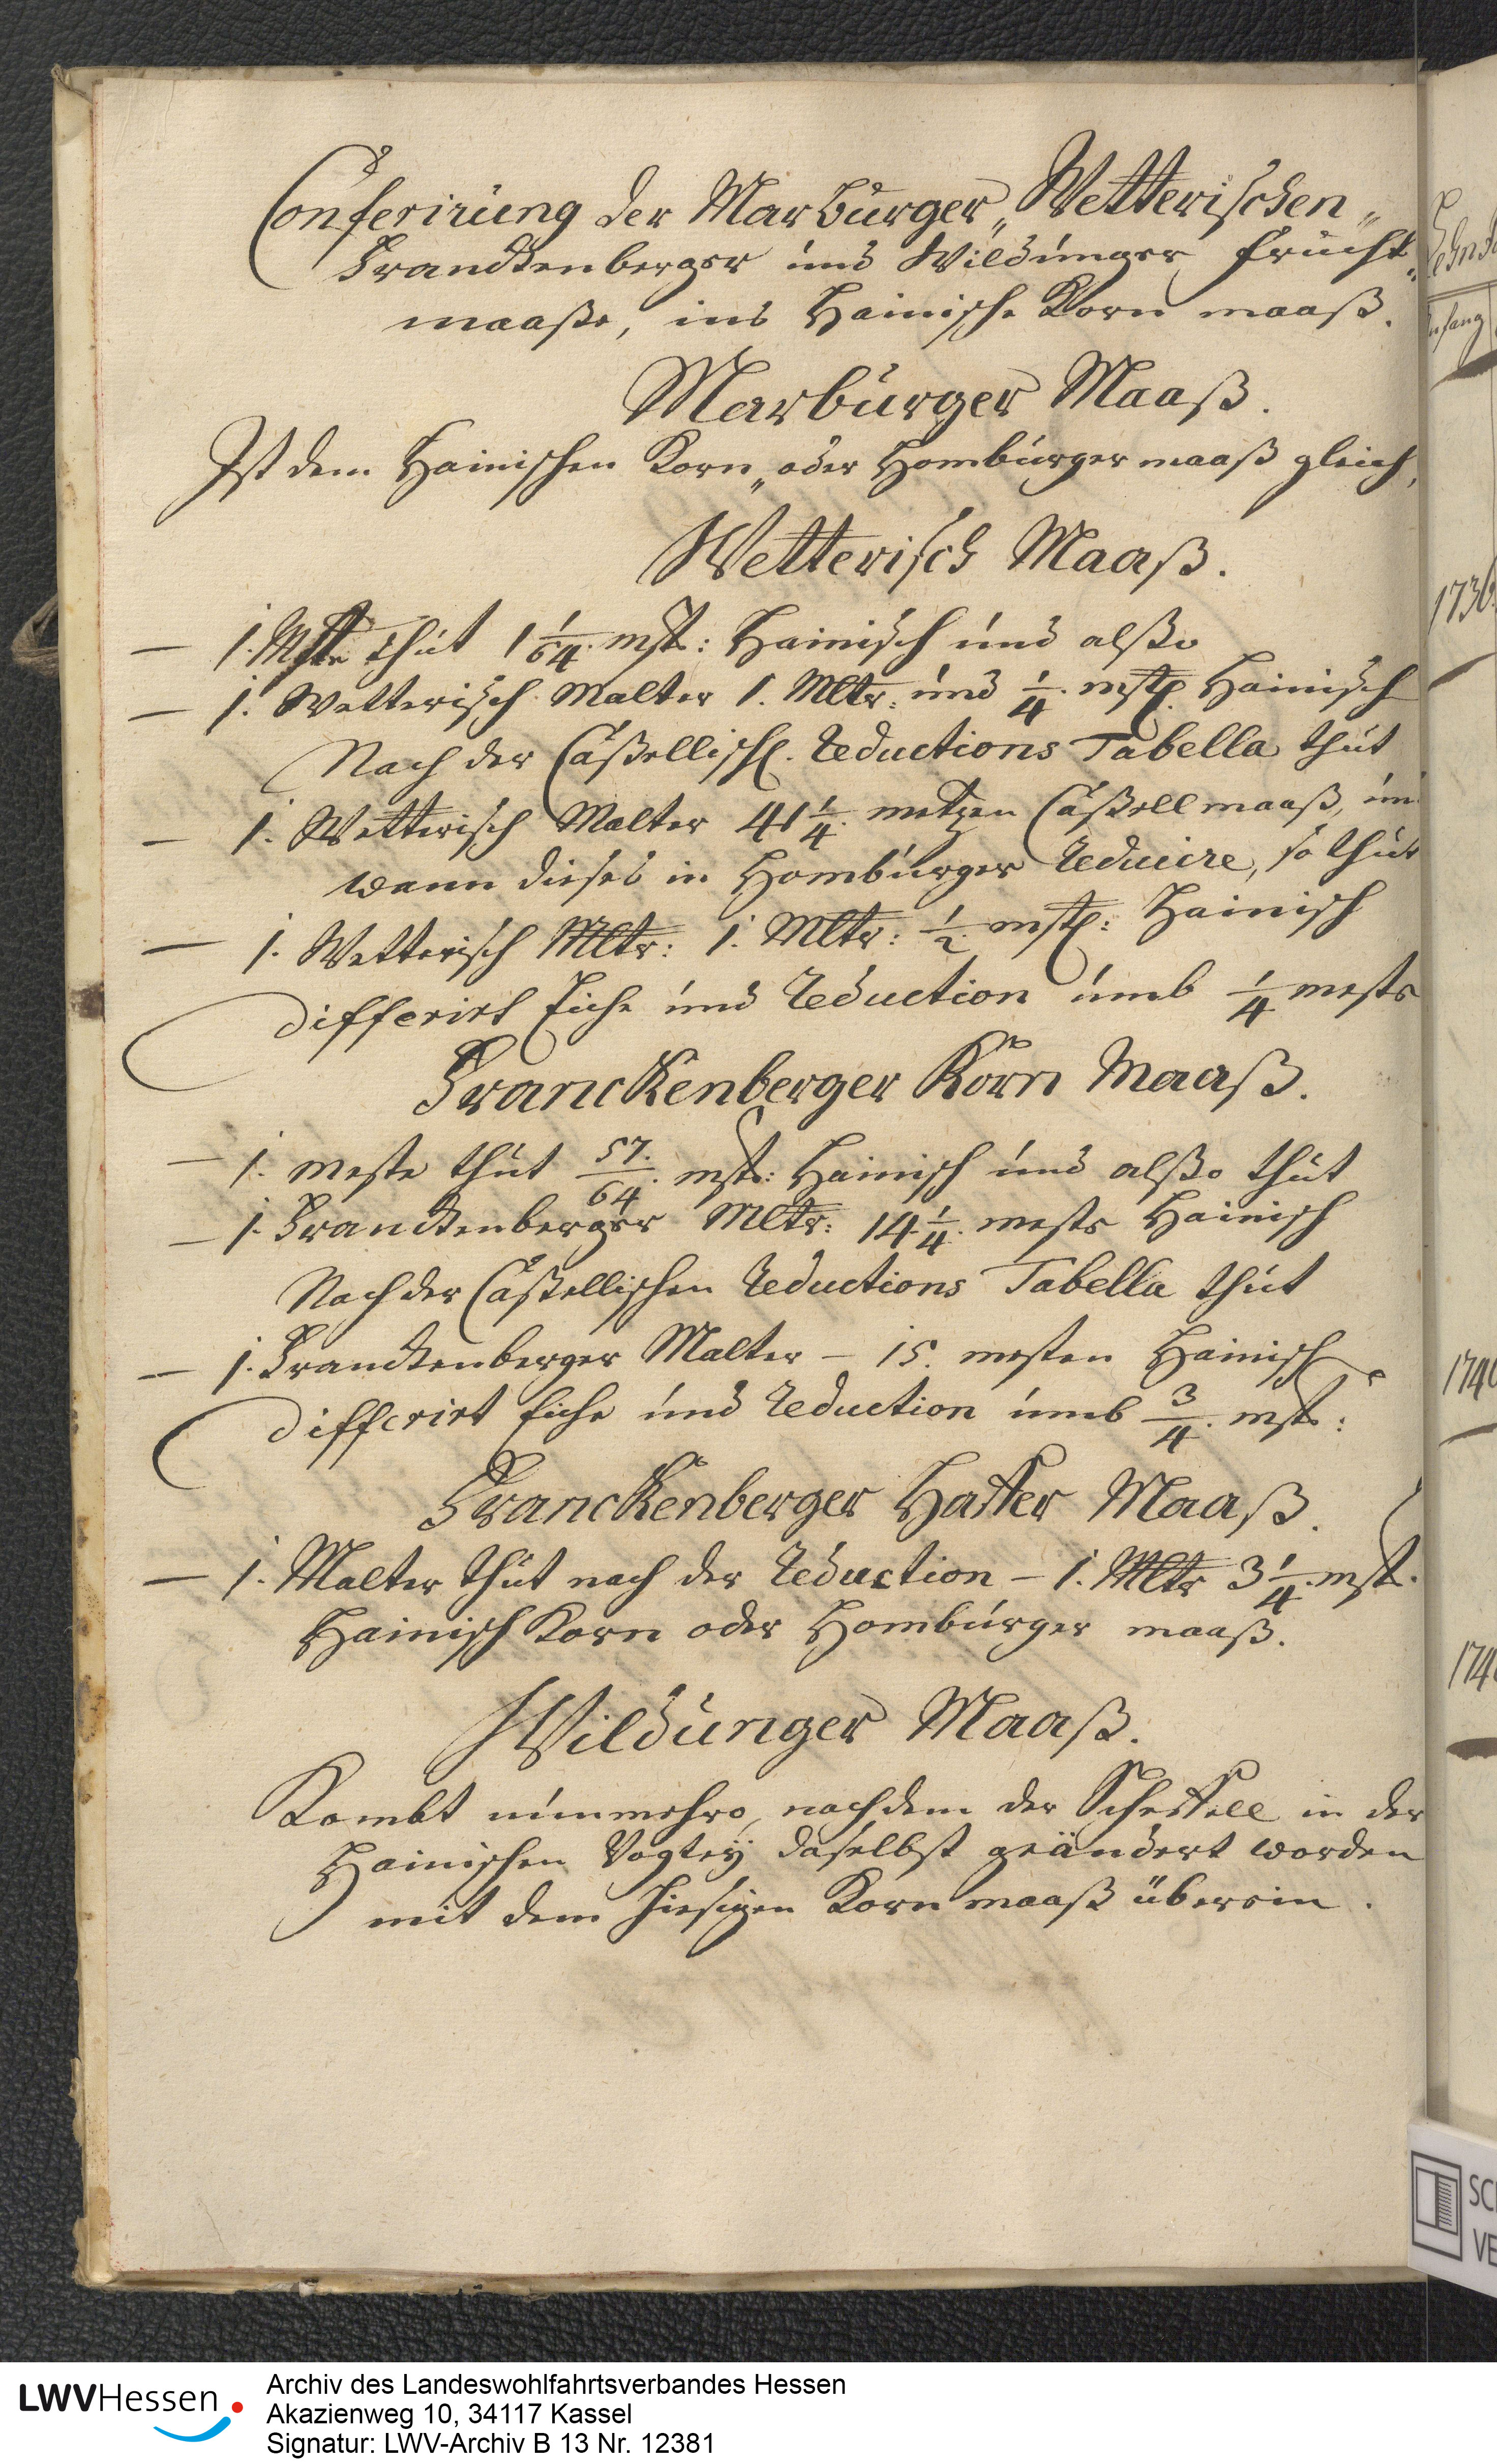 Conferirung der Marburger„ Wetterischen„
Franckenberger und Wildunger frucht„
maaße, ins Hainische Korn maaß.
Marburger Maaß.
Ist dem Hainischen Korn„ oder Homburger maaß gleich,
Wetterisch Maaß.
— 1. Mste thut 1 1/64. mst: Hainisch und alßo
— 1. Wetterisch Malter 1. Mltr: und 1/4. mst. Hainisch
Nach der Caßellisch. Reductions Tabella thut
— 1. Wetterisch Malter 41 1/4. metzen Caßell maaß, un
wann dieses in Homburger Reducire, so thut
— 1. Wetterisch Mltr: 1. Mltr: 1/2. mst: Hainisch
differirt Eiche und Reduction umb 1/4 meste
Franckenberger Korn Maaß.
— 1. meste thut 57./64. mst: Hainisch und alßo thut
— 1. Franckenberger Mltr: 14 1/4. meste Hainisch
Nach der Caßellischen Reductions Tabella thut
— 1. Franckenberger Malter – 15. mesten Hainisch
differirt Eiche und Reduction umb 3/4. mst:
Franckenberger Haffer Maaß.
— 1. Malter thut nach der Reduction – 1. Mltr 3 1/4. mst.
Hainisch Korn oder Homburger maaß.
Wildunger Maaß.
Kombt nunmehro, nachdem der Scheffell in der
Hainischen Vogtey daselbst geändert worden
mit dem hiesigen Korn maaß überein.
1736
174
174
SC
VE
LWVHessen
Archiv des Landeswohlfahrtsverbandes Hessen
Akazienweg 10, 34117 Kassel
Signatur: LWV-Archiv B 13 Nr. 12381